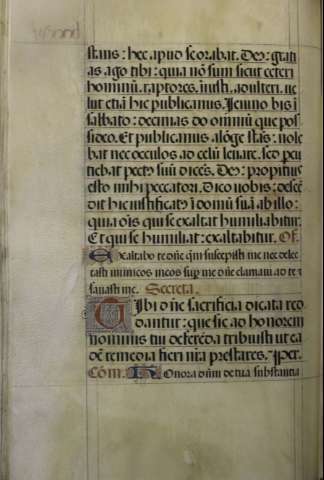 stans: hec apud se orabat. Deus: grati
as ago tibi: quia nõ sum sicut ceteri
hominũ. raptores, iniusti, adulteri: ve
lut etiã hic publicanus. Ieiuno bis ĩ
sabbato: decimas do omniũ que pos
sideo. Et publicanus alõge stãs: nole
bat nec oculos ad celũ levare. Sed percu
tiebat pectus suũ dicẽs. Deus: propitius
esto mihi peccatori. Dico vobis: descẽ
dit hic iustificatus ĩ domũ suã ab illo:
quia ois qui se exaltat humiliabitur.
Et qui se humiliat: exaltabitur. Of.
Exaltabo te dñe qm̃ suscepisti me nec delec
tasti inimicos meos sup me dñe clamavi ad te ⁊
sanasti me. Secreta.
Tibi dñe sacrificia dicata red
dantur: que sic ad honorem
nominis tui deferẽda tribuisti ut ea
dẽ remedia fieri nr̃a prestares. per.
Cõm. Honora dñm de tua substantia